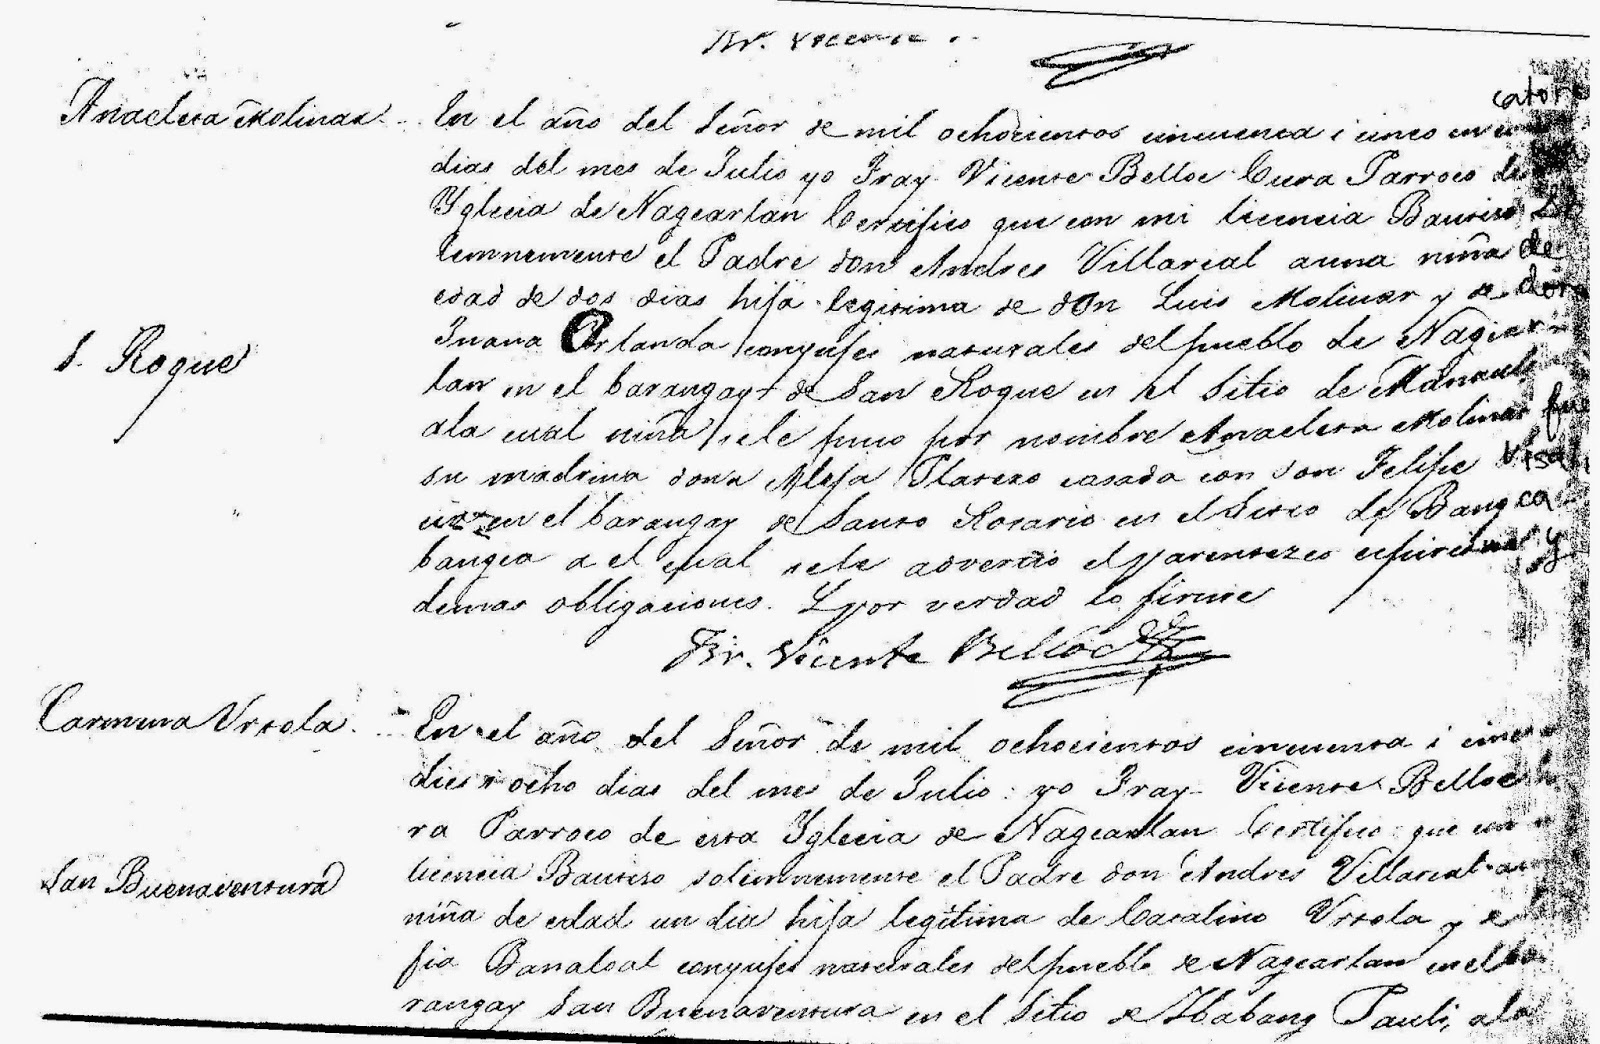 Fr. Vicente
Anacleta Molinar
En el año del Señor de mil ochocientos cincuenta i cinco en catorce
dias del mes de Julio yo Fray Vicente Belloc Cura Parroco de
Yglecia de Nagcarlan Certifico que con mi licencia Bautizo So
lemnemente el Padre don Andres Villareal auna niña de
edad de dos dias hija legitima de don Luis Molinar y de doña
Juana Orlanda conyujes naturales del pueblo de Nagcar
lan en el barangay de San Roque en el Sitio de
S. Roque
ala cual niña se le puso por nombre Anacleta Molinar fue
su madrina doña Aleja Platero casada con don Felipe
en el barangay de Santo Rosario en el Sitio de Bangca
bangca a el cual se le advertio el parentezco espiritual y
demas obligaciones. Y por verdad lo firme
Fr. Vicente Belloc
Carmena Ursola
En el año del Señor de mil ochocientos cincuenta i cinco
dies i ocho dias del mes de Julio: yo Fray Vicente Belloc
ra Parroco de esta Yglecia de Nagcarlan Certifico que con
licencia Bautizo solemnemente el Padre don Andres Villareal a
San Buenaventura
niña de edad un dia hija legitima de Catalino Ursola y de
fia Banaloal conyujes naturales del pueblo de Nagcarlan en el ba
rangay San Buenaventura en el Sitio de Ibabang Pauli, ala